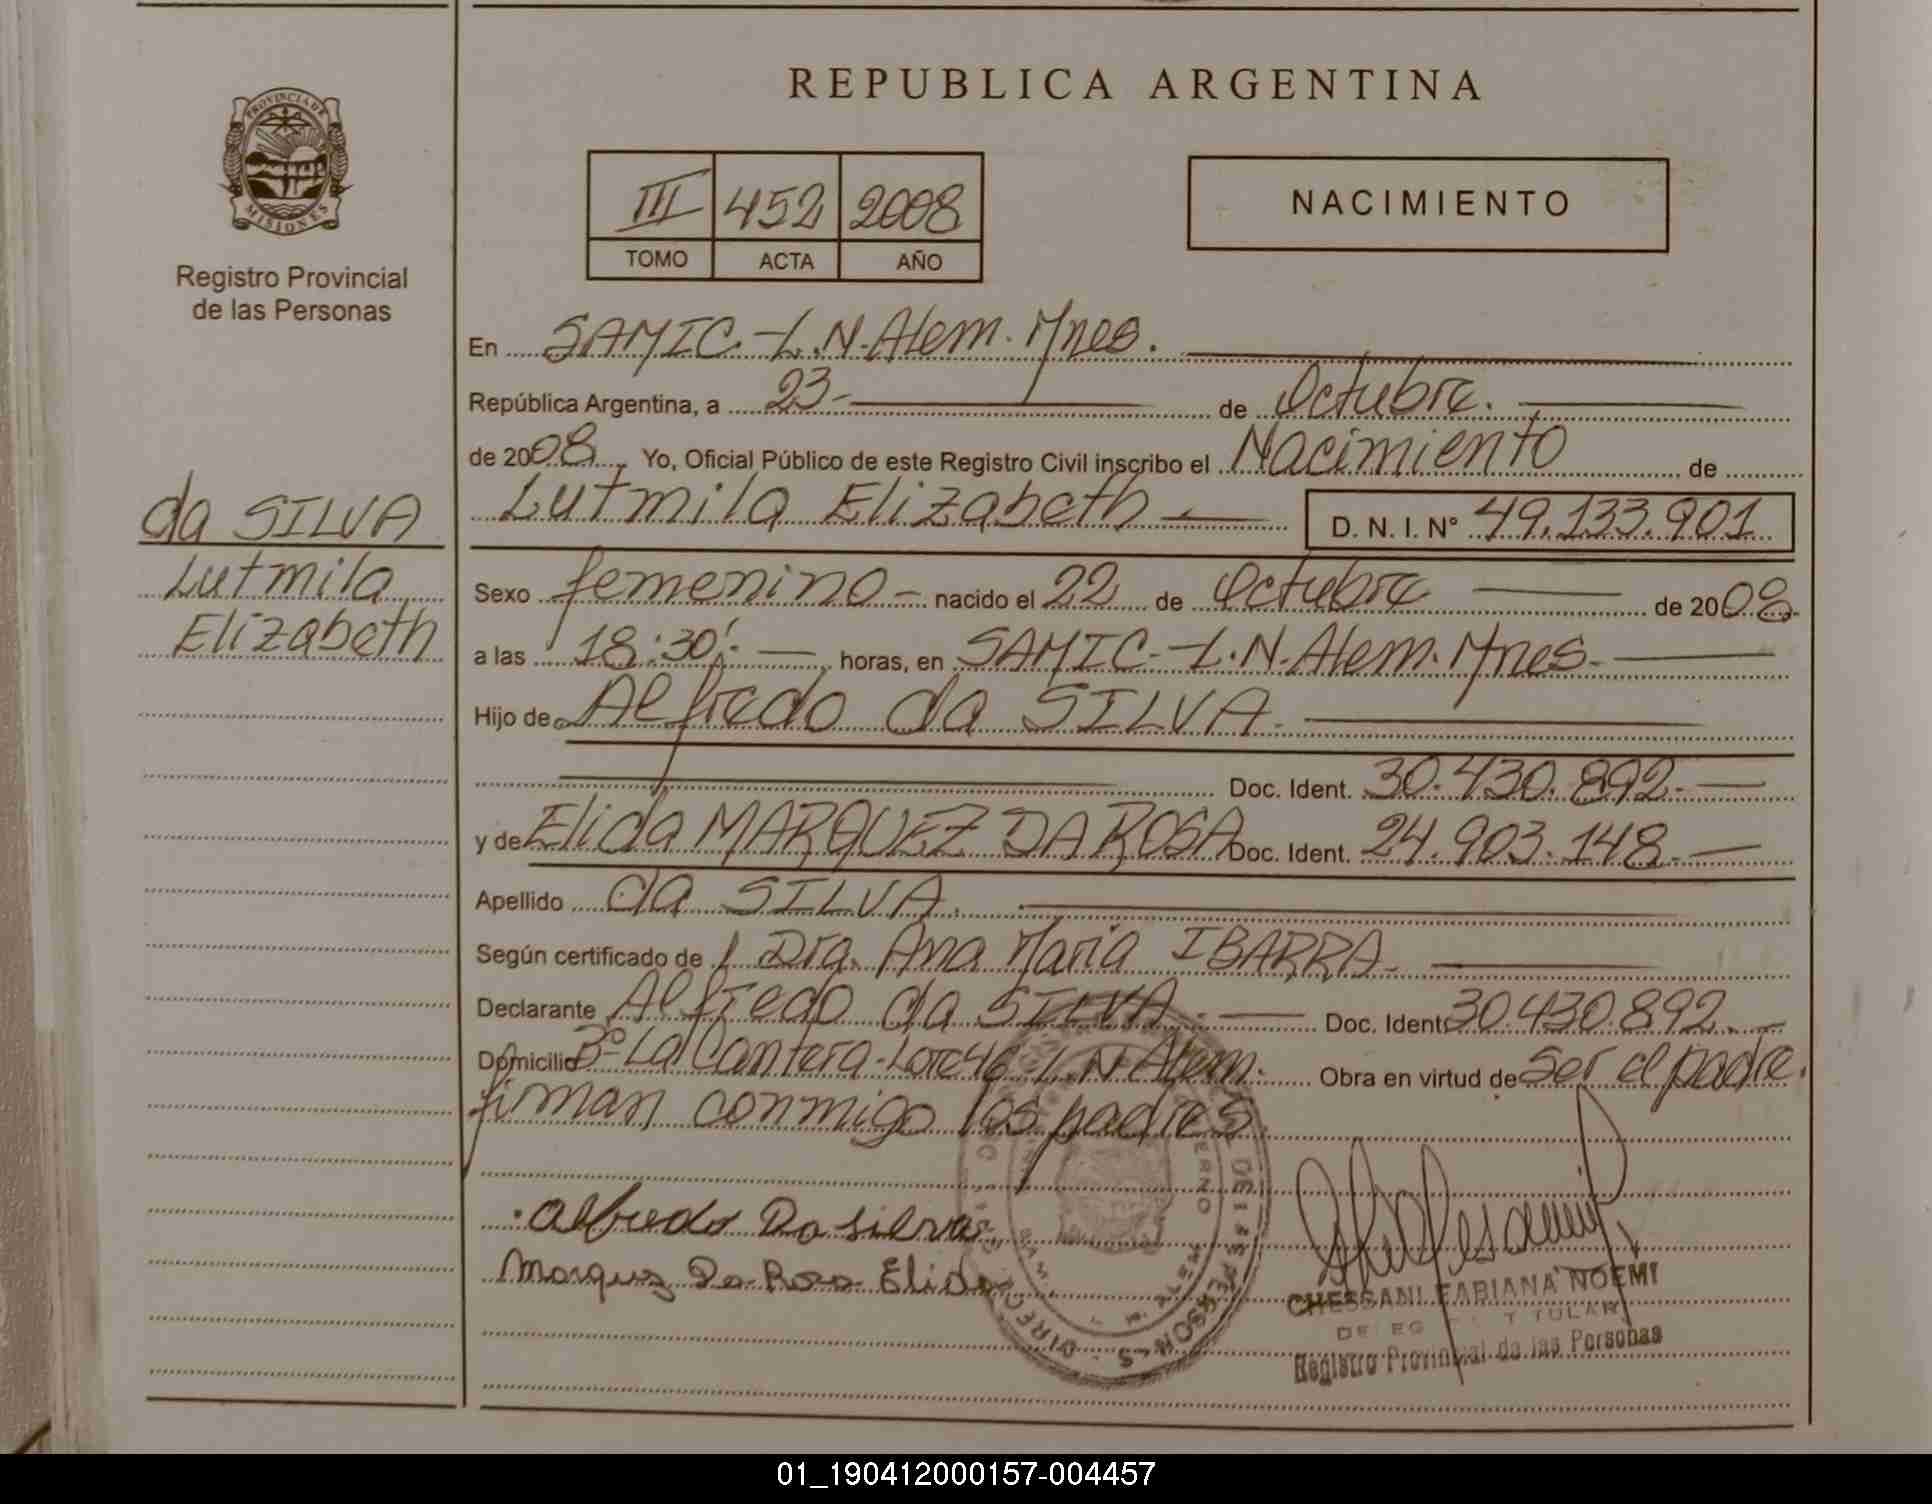 REPUBLICA ARGENTINA
PROVINCIA DE
MISIONES
Registro Provincial
de las Personas
III 452 2008
TOMO ACTA AÑO
NACIMIENTO
En SAMIC.-L.N.Alem. Mnes.
República Argentina, a 23- de Octubre.
de 2008. Yo, Oficial Público de este Registro Civil inscribo el Nacimiento de
Lutmila Elizabeth D. N. I. N° 49.133.901
da SILVA
Lutmila
Elizabeth
Sexo femenino - nacido el 22 de Octubre de 2008.
a las 18:30'.- horas, en SAMIC.-L.N.Alem. Mnes.
Hijo de Alfredo da SILVA.
Doc. Ident. 30.430.892.-
y de Elida MARQUEZ DA ROSA Doc. Ident. 24.903.148.-
Apellido da SILVA.
Según certificado de Dra. Ana Maria IBARRA.
Declarante Alfredo da SILVA. - Doc. Ident. 30.430.892.-
Domicilio B° La Cantera-Lote 46 L.N Alem. Obra en virtud de Ser el padre.
firman conmigo los padres.
Alfredo Da silva
Marquez Da Rosa Elida
CHESSANI FABIANA NOEMI
TITULAR
Registro Provincial de las Personas
01_190412000157-004457